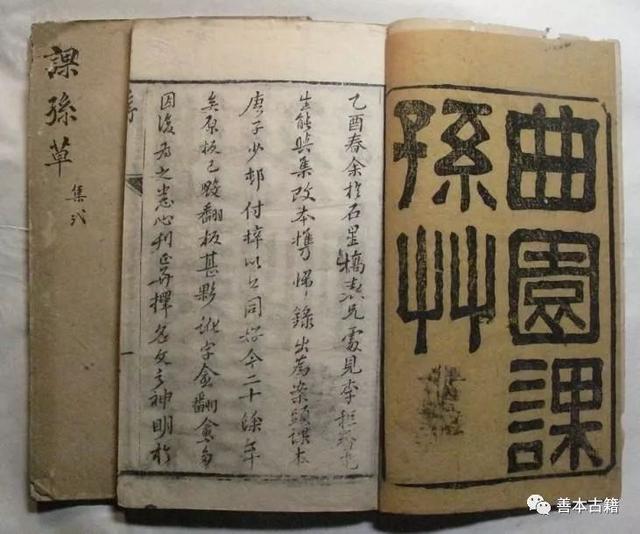 曲園課
孫艸
乙酉春余於石兄處見李
生能與集改本携歸錄出為案頭課本
庚子少邨付梓以公同好今二十餘年
矣原板已毀翻板甚夥訛字愈翻愈多
因復為之悉心刊正再擇名文之神明於
課孫草
集
善本古籍